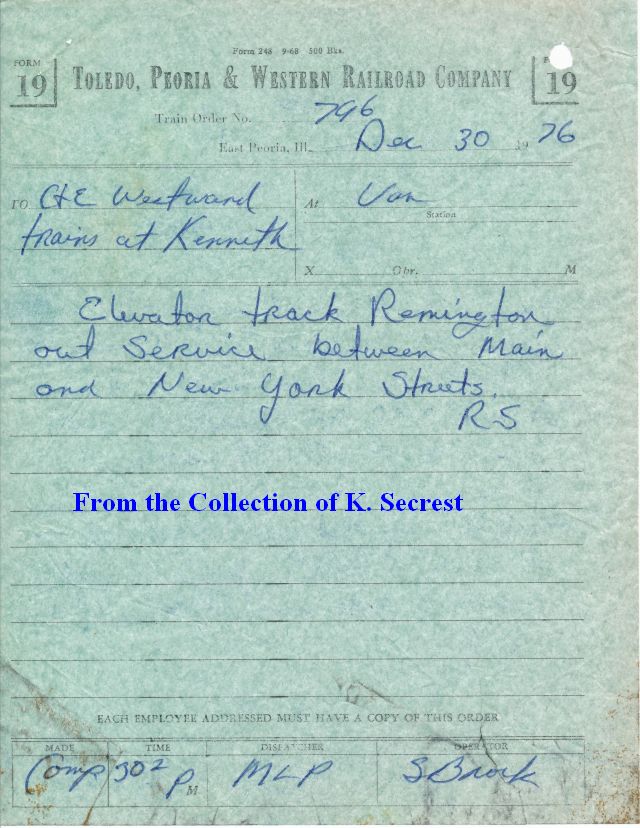 Form 248 9-68 500 Bks.
FORM 19
TOLEDO, PEORIA & WESTERN RAILROAD COMPANY
FORM 19
Train Order No. 796
East Peoria, Ill. Dec 30 1976
TO C&E Westward
trains at Kenneth
At Van
Station
X Opr. M
Elevator track Remington
out Service between Main
and New York Streets.
RS
From the Collection of K. Secrest
EACH EMPLOYEE ADDRESSED MUST HAVE A COPY OF THIS ORDER
MADE TIME DISPATCHER OPERATOR
Comp 302 P M MLP S Brock